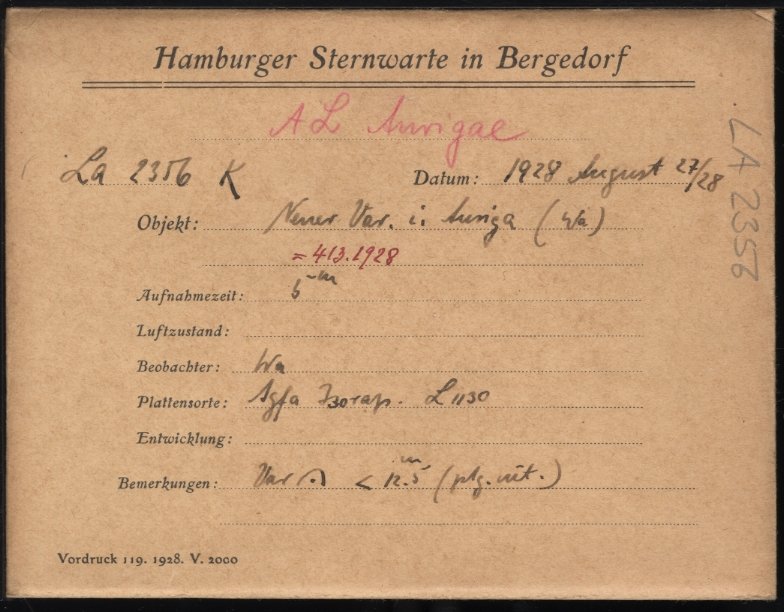 Hamburger Sternwarte in Bergedorf
AL Aurigae
La 2356 K Datum: 1928 August 27/28
Objekt: Neuer Var. in Auriga (Wa)
= 413.1928
Aufnahmezeit: 5m
Luftzustand:
Beobachter: Wa
Plattensorte: Agfa Isorap. L 1130
Entwicklung:
Bemerkungen: Var < 12.5m
Vordruck 119. 1928. V. 2000
LA 2356